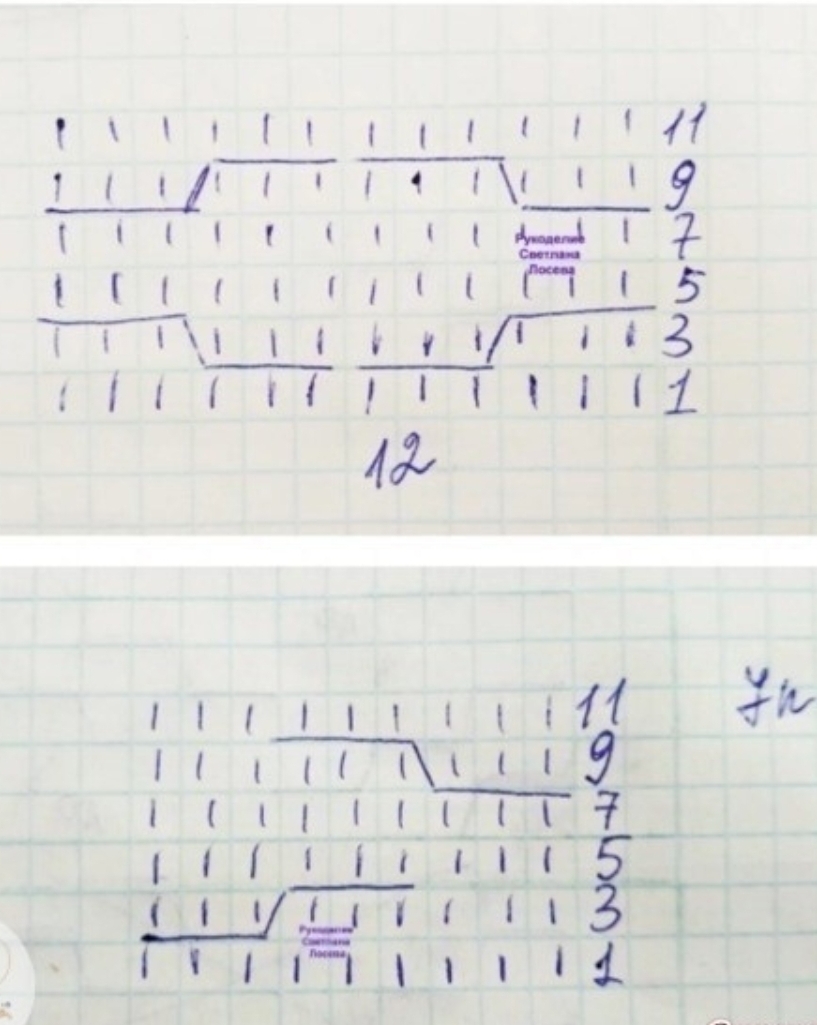 11
9
7
Рукоделие
Светлана
Лосева
5
3
1
12
11
9
7
5
3
Рукоделие
Светлана
Лосева
1